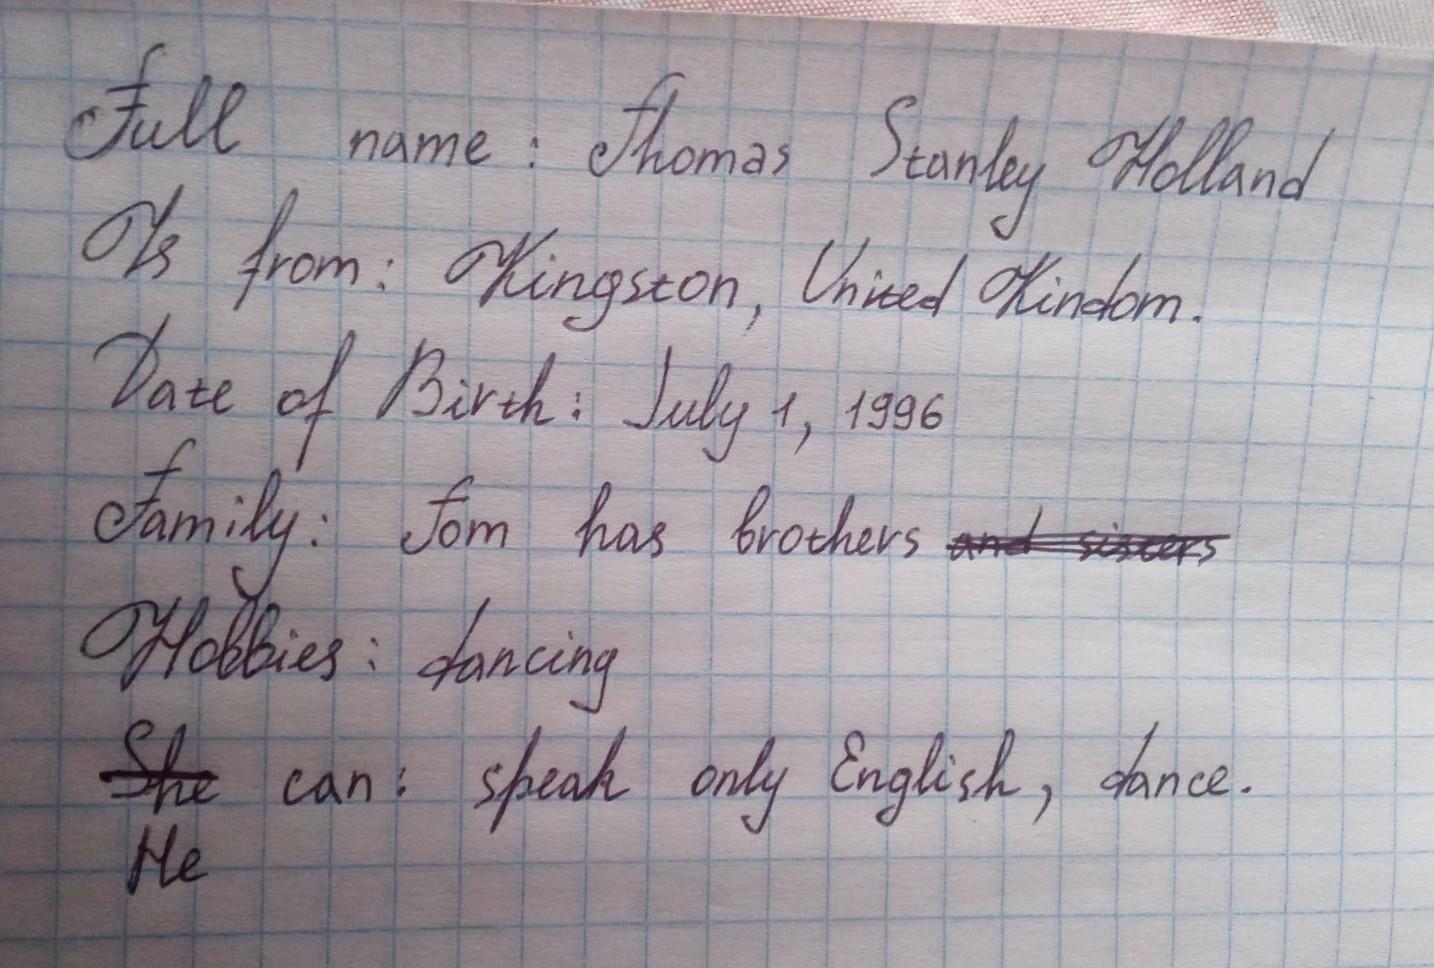 Full name: Thomas Stanley Holland
Is from: Kingston, United Kindom.
Date of Birth: July 1, 1996
Family: Tom has brothers and sisters
Hobbies: dancing
She can: speak only English, dance.
He